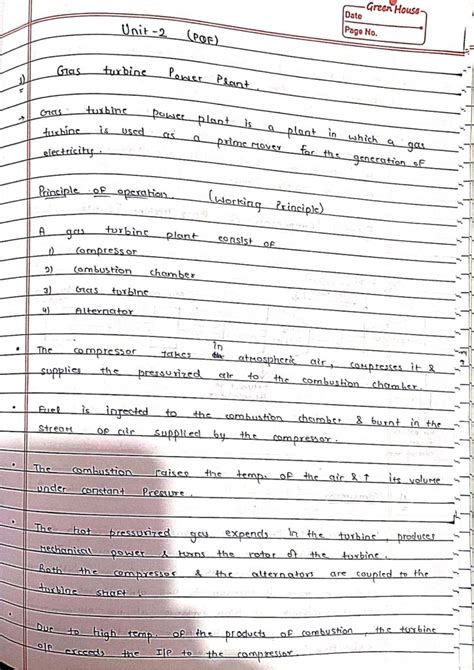 Green House
Date
Page No.
Unit-2 (POE)
1) Gas turbine Power Plant.
→ Gas turbine power plant is a plant in which a gas
turbine is used as a prime mover for the generation of
electricity.
Principle of operation. (Working Principle)
A gas turbine plant consist of
1) Compressor
2) Combustion chamber
3) Gas turbine
4) Alternator
• The compressor takes in atmospheric air, compreses it &
supplies the pressurized air to the combustion chamber.
• Fuel is injected to the combustion chamber & burnt in the
stream of air supplied by the compressor.
• The combustion raises the temp. of the air & ↑ its volume
under constant Pressure.
• The hot pressurized gas expends in the turbine, produces
mechanical power & turns the rotor of the turbine.
Both the compressor & the alternators are coupled to the
turbine shaft.
• Due to high temp. of the products of combustion, the turbine
O/P exceeds the I/P to the compressor.